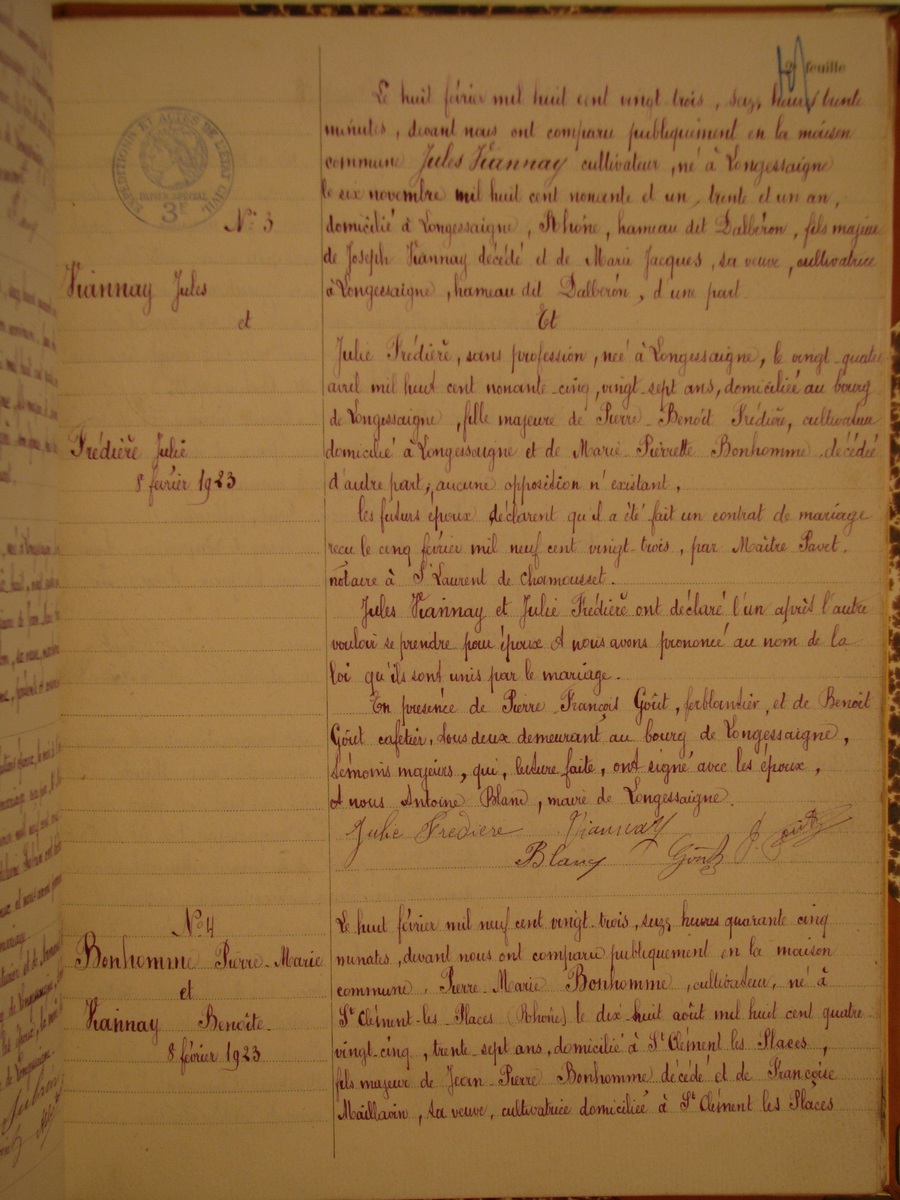 feuille
EXPÉDITIONS ET ACTES DE L'ÉTAT CIVIL
PAPIER SPÉCIAL
3F
Le huit février mil huit cent vingt-trois, seize heures trente
minutes, devant nous ont comparu publiquement en la maison
commune Jules Viannay cultivateur, né à Longessaigne
le six novembre mil huit cent nonante et un, trente et un an,
domicilié à Longessaigne, Rhône, hameau dit Dalbéron, fils majeur
de Joseph Viannay décédé et de Marie Jacques, sa veuve, cultivatrice
à Longessaigne, hameau dit Dalberon, d'une part
Et
Julie Frédière, sans profession, née à Longessaigne, le vingt-quatre
avril mil huit cent nonante-cinq, vingt-sept ans, domiciliée au bourg
de Longessaigne, fille majeure de Pierre-Benoît Frédière, cultivateur
domicilié à Longessaigne et de Marie-Pierrette Bonhomme décédée
d'autre part; aucune opposition n'existant,
les futurs époux déclarent qu'il a été fait un contrat de mariage
recu le cinq février mil neuf cent vingt-trois, par Maître Pavet.
notaire à St Laurent de Chamousset.
Jules Viannay et Julie Frédière ont déclaré l'un après l'autre
vouloir se prendre pour époux et nous avons prononcé au nom de la
loi qu'ils sont unis par le mariage.
En présence de Pierre François Goût, ferblantier, et de Benoît
Goût cafetier, tous deux demeurant au bourg de Longessaigne,
témoins majeurs, qui, lecture faite, ont signé avec les époux,
et nous Antoine Blanc, maire de Longessaigne.
Julie Frédière Viannay
Blanc Goût J. Goutt
N° 3
Viannay Jules
et
Frédière Julie
8 février 1923
N° 4
Bonhomme Pierre-Marie
et
Viannay Benoîte.
8 février 1923
Le huit février mil neuf cent vingt-trois, seize heures quarante cinq
minutes, devant nous ont comparu publiquement en la maison
commune, Pierre-Marie Bonhomme, cultivateur, né à
St Clément-les-Places (Rhône) le dix-huit août mil huit cent quatre-
vingt-cinq, trente-sept ans, domicilié à St Clément les Places,
fils majeur de Jean-Pierre Bonhomme décédé et de Françoise
Maillavin, sa veuve, cultivatrice domiciliée à St Clément les Places